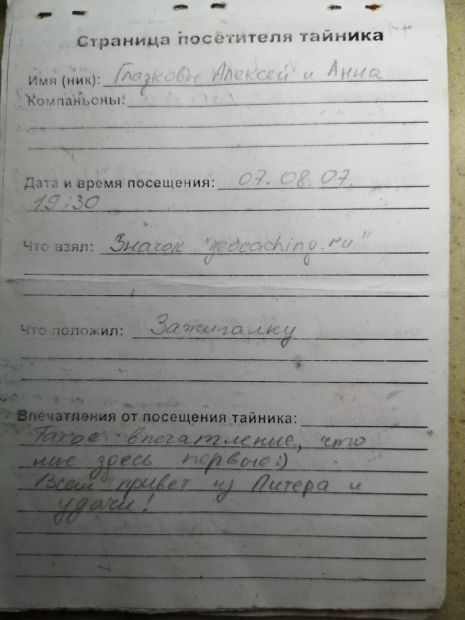 Страница посетителя тайника
Имя (ник): Глазковы Алексей и Анна
Компаньоны:
Дата и время посещения: 07.08.07
19:30
Что взял: Значок "geocaching.ru"
Что положил: Зажигалку
Впечатления от посещения тайника:
Такое впечатление, что
мы здесь первые :)
Всем привет из Питера и
удачи!